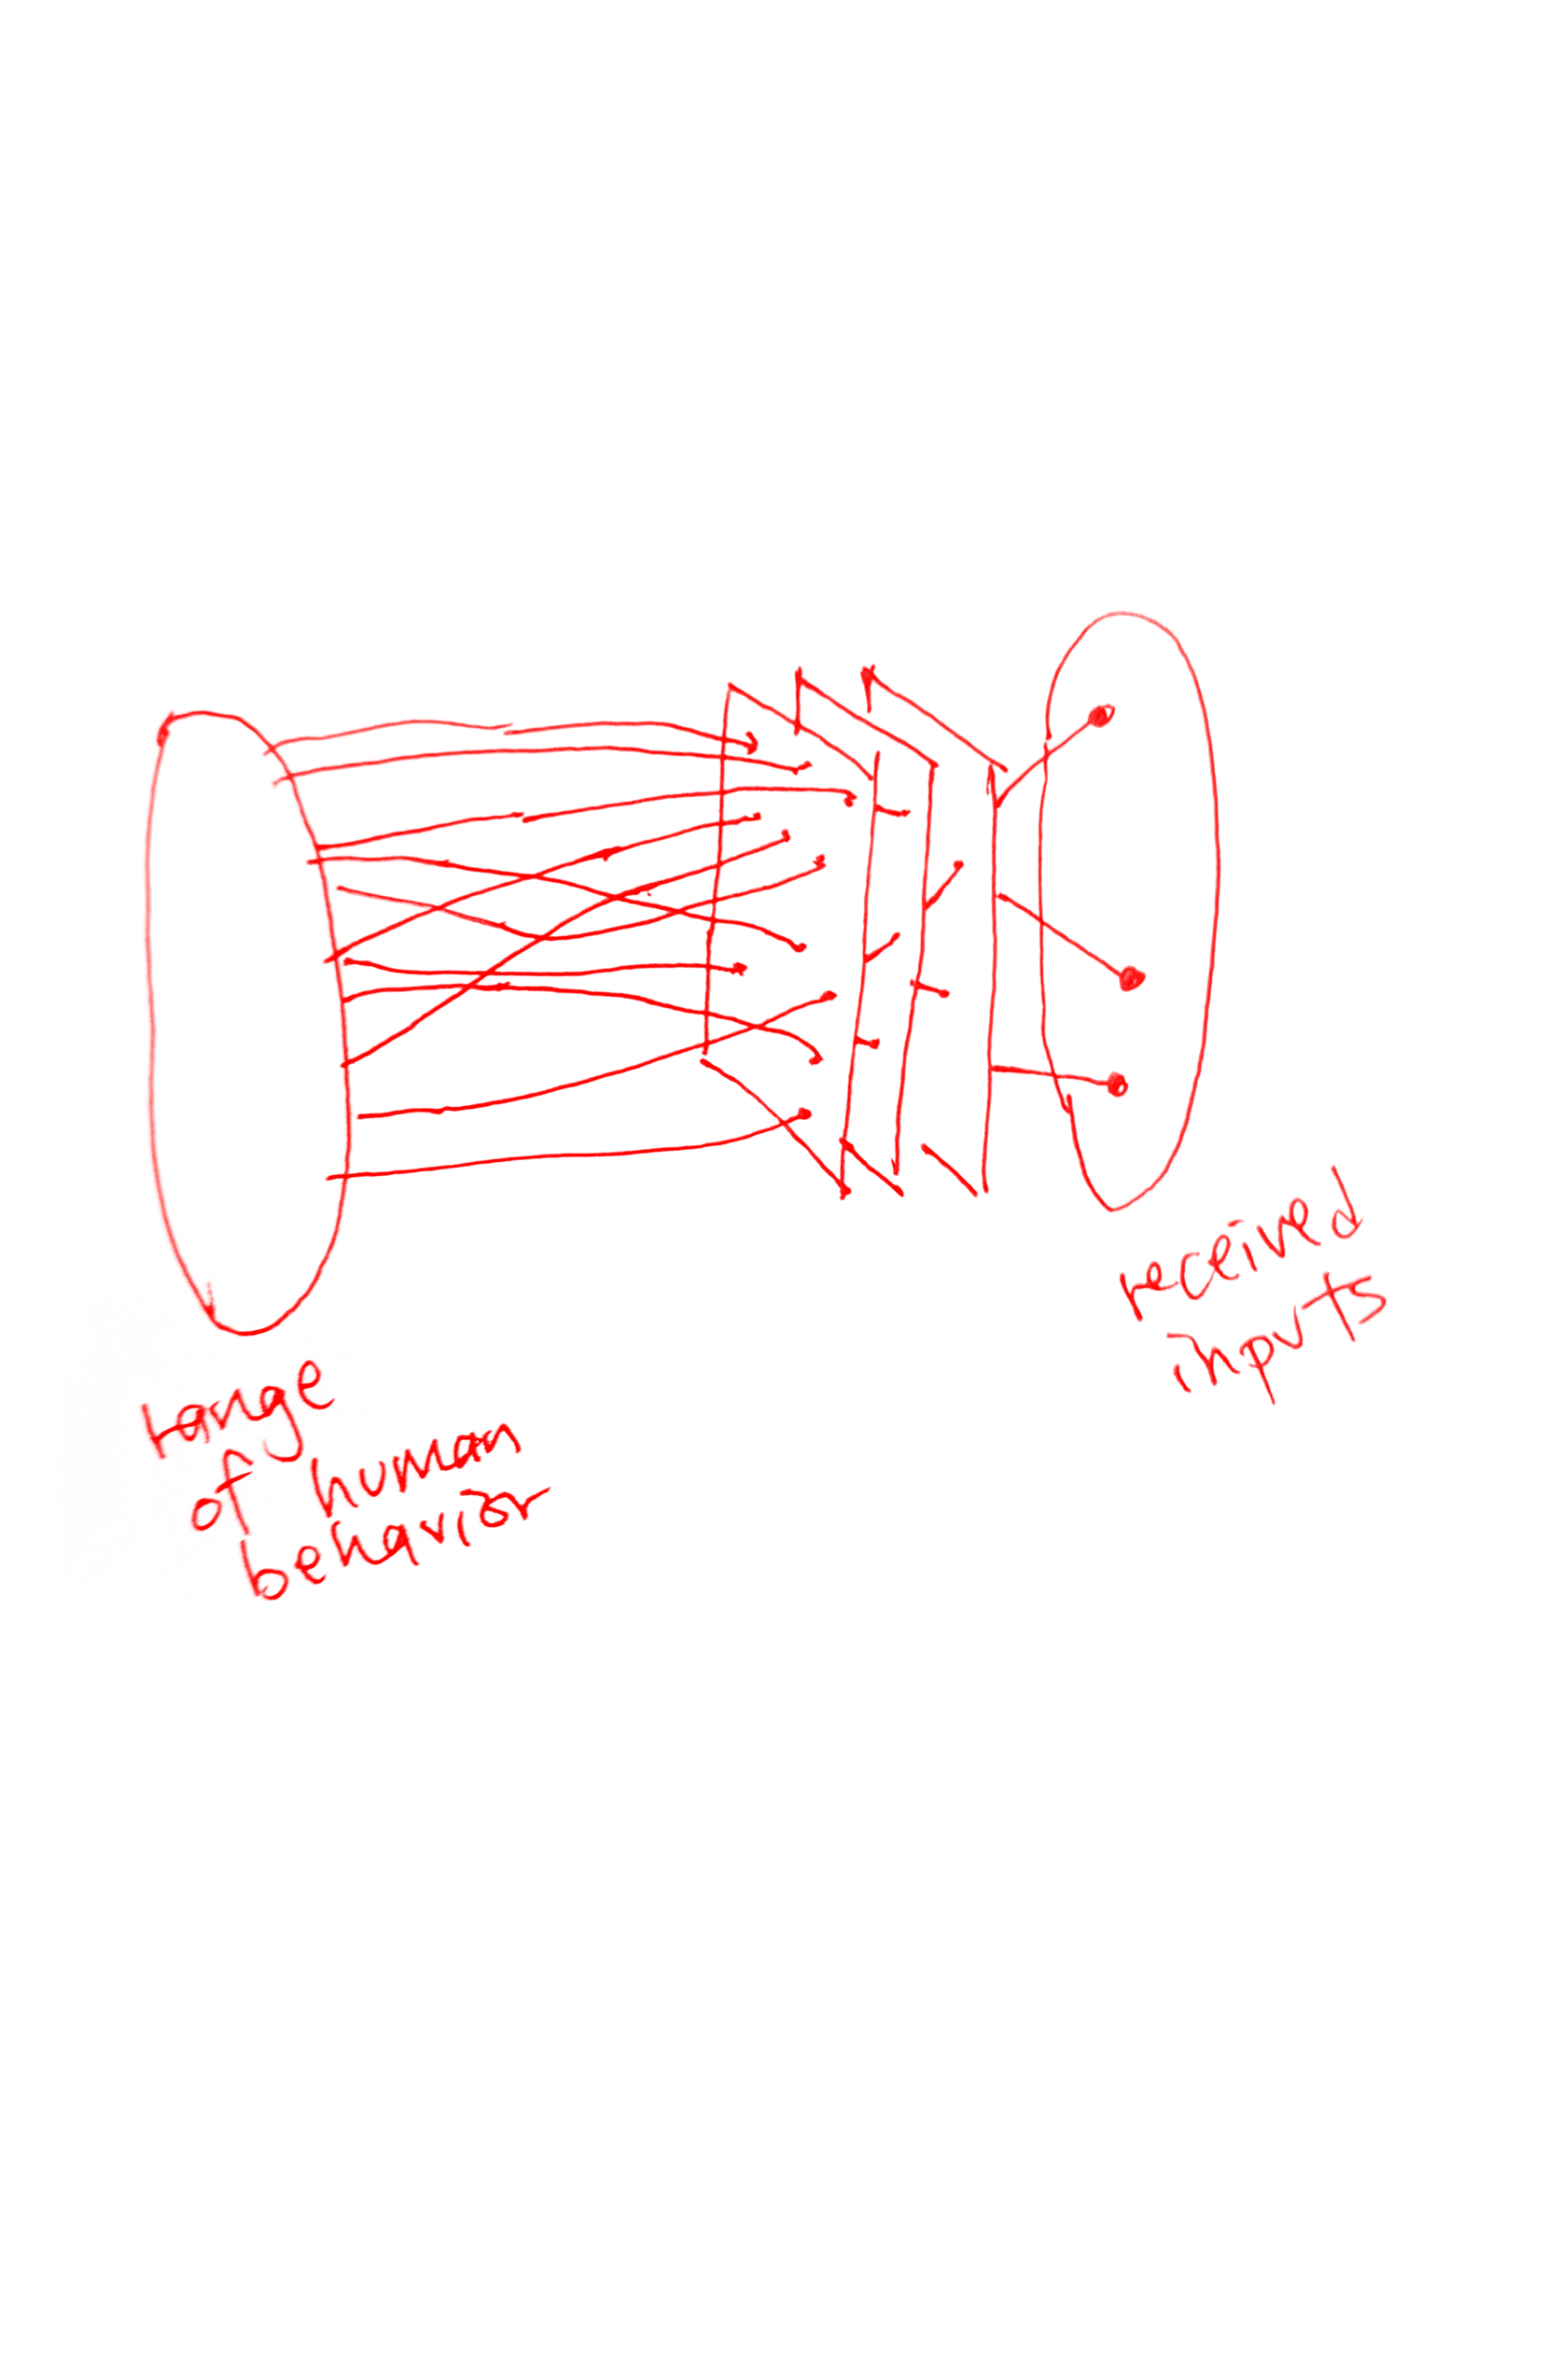 range
of human
behavior
received
inputs